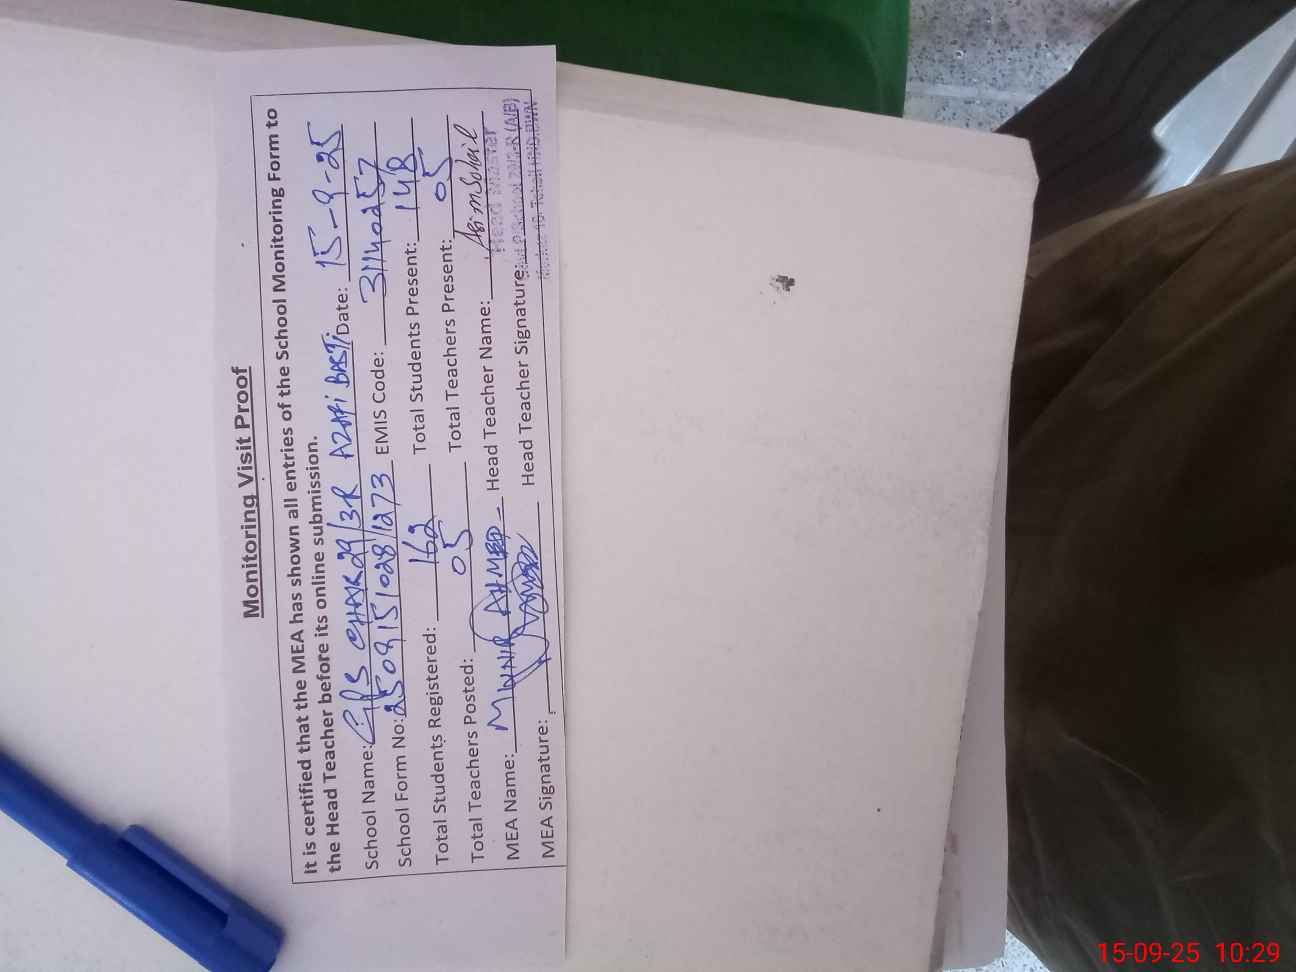 Monitoring Visit Proof
It is certified that the MEA has shown all entries of the School Monitoring Form to
the Head Teacher before its online submission.
School Name: GPS CHAK 29/3R AZAFI BASTI Date: 15-9-25
School Form No: 2509151028/1273 EMIS Code: 31140257
Total Students Registered: 162 Total Students Present: 148
Total Teachers Posted: 05 Total Teachers Present: 05
MEA Name: MUNIR AHMED Head Teacher Name: Asim Sohail
MEA Signature: Head Teacher Signature:
Head Master
15-09-25 10:29